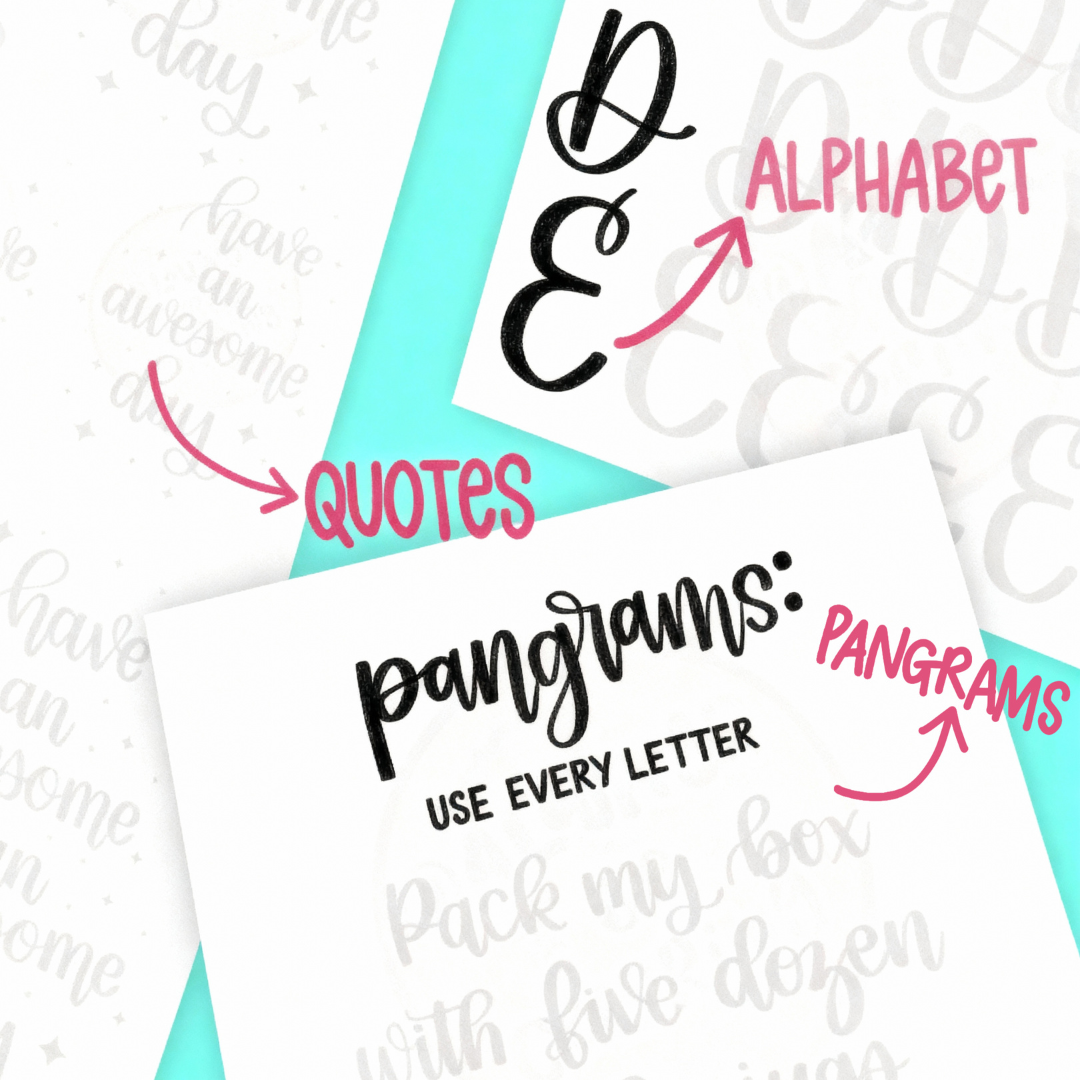 day
have
an
awesome
day
have
an
awesome
an
awesome
D
E
ALPHABET
QUOTES
pangrams:
USE EVERY LETTER
PANGRAMS
Pack my box
with five dozen